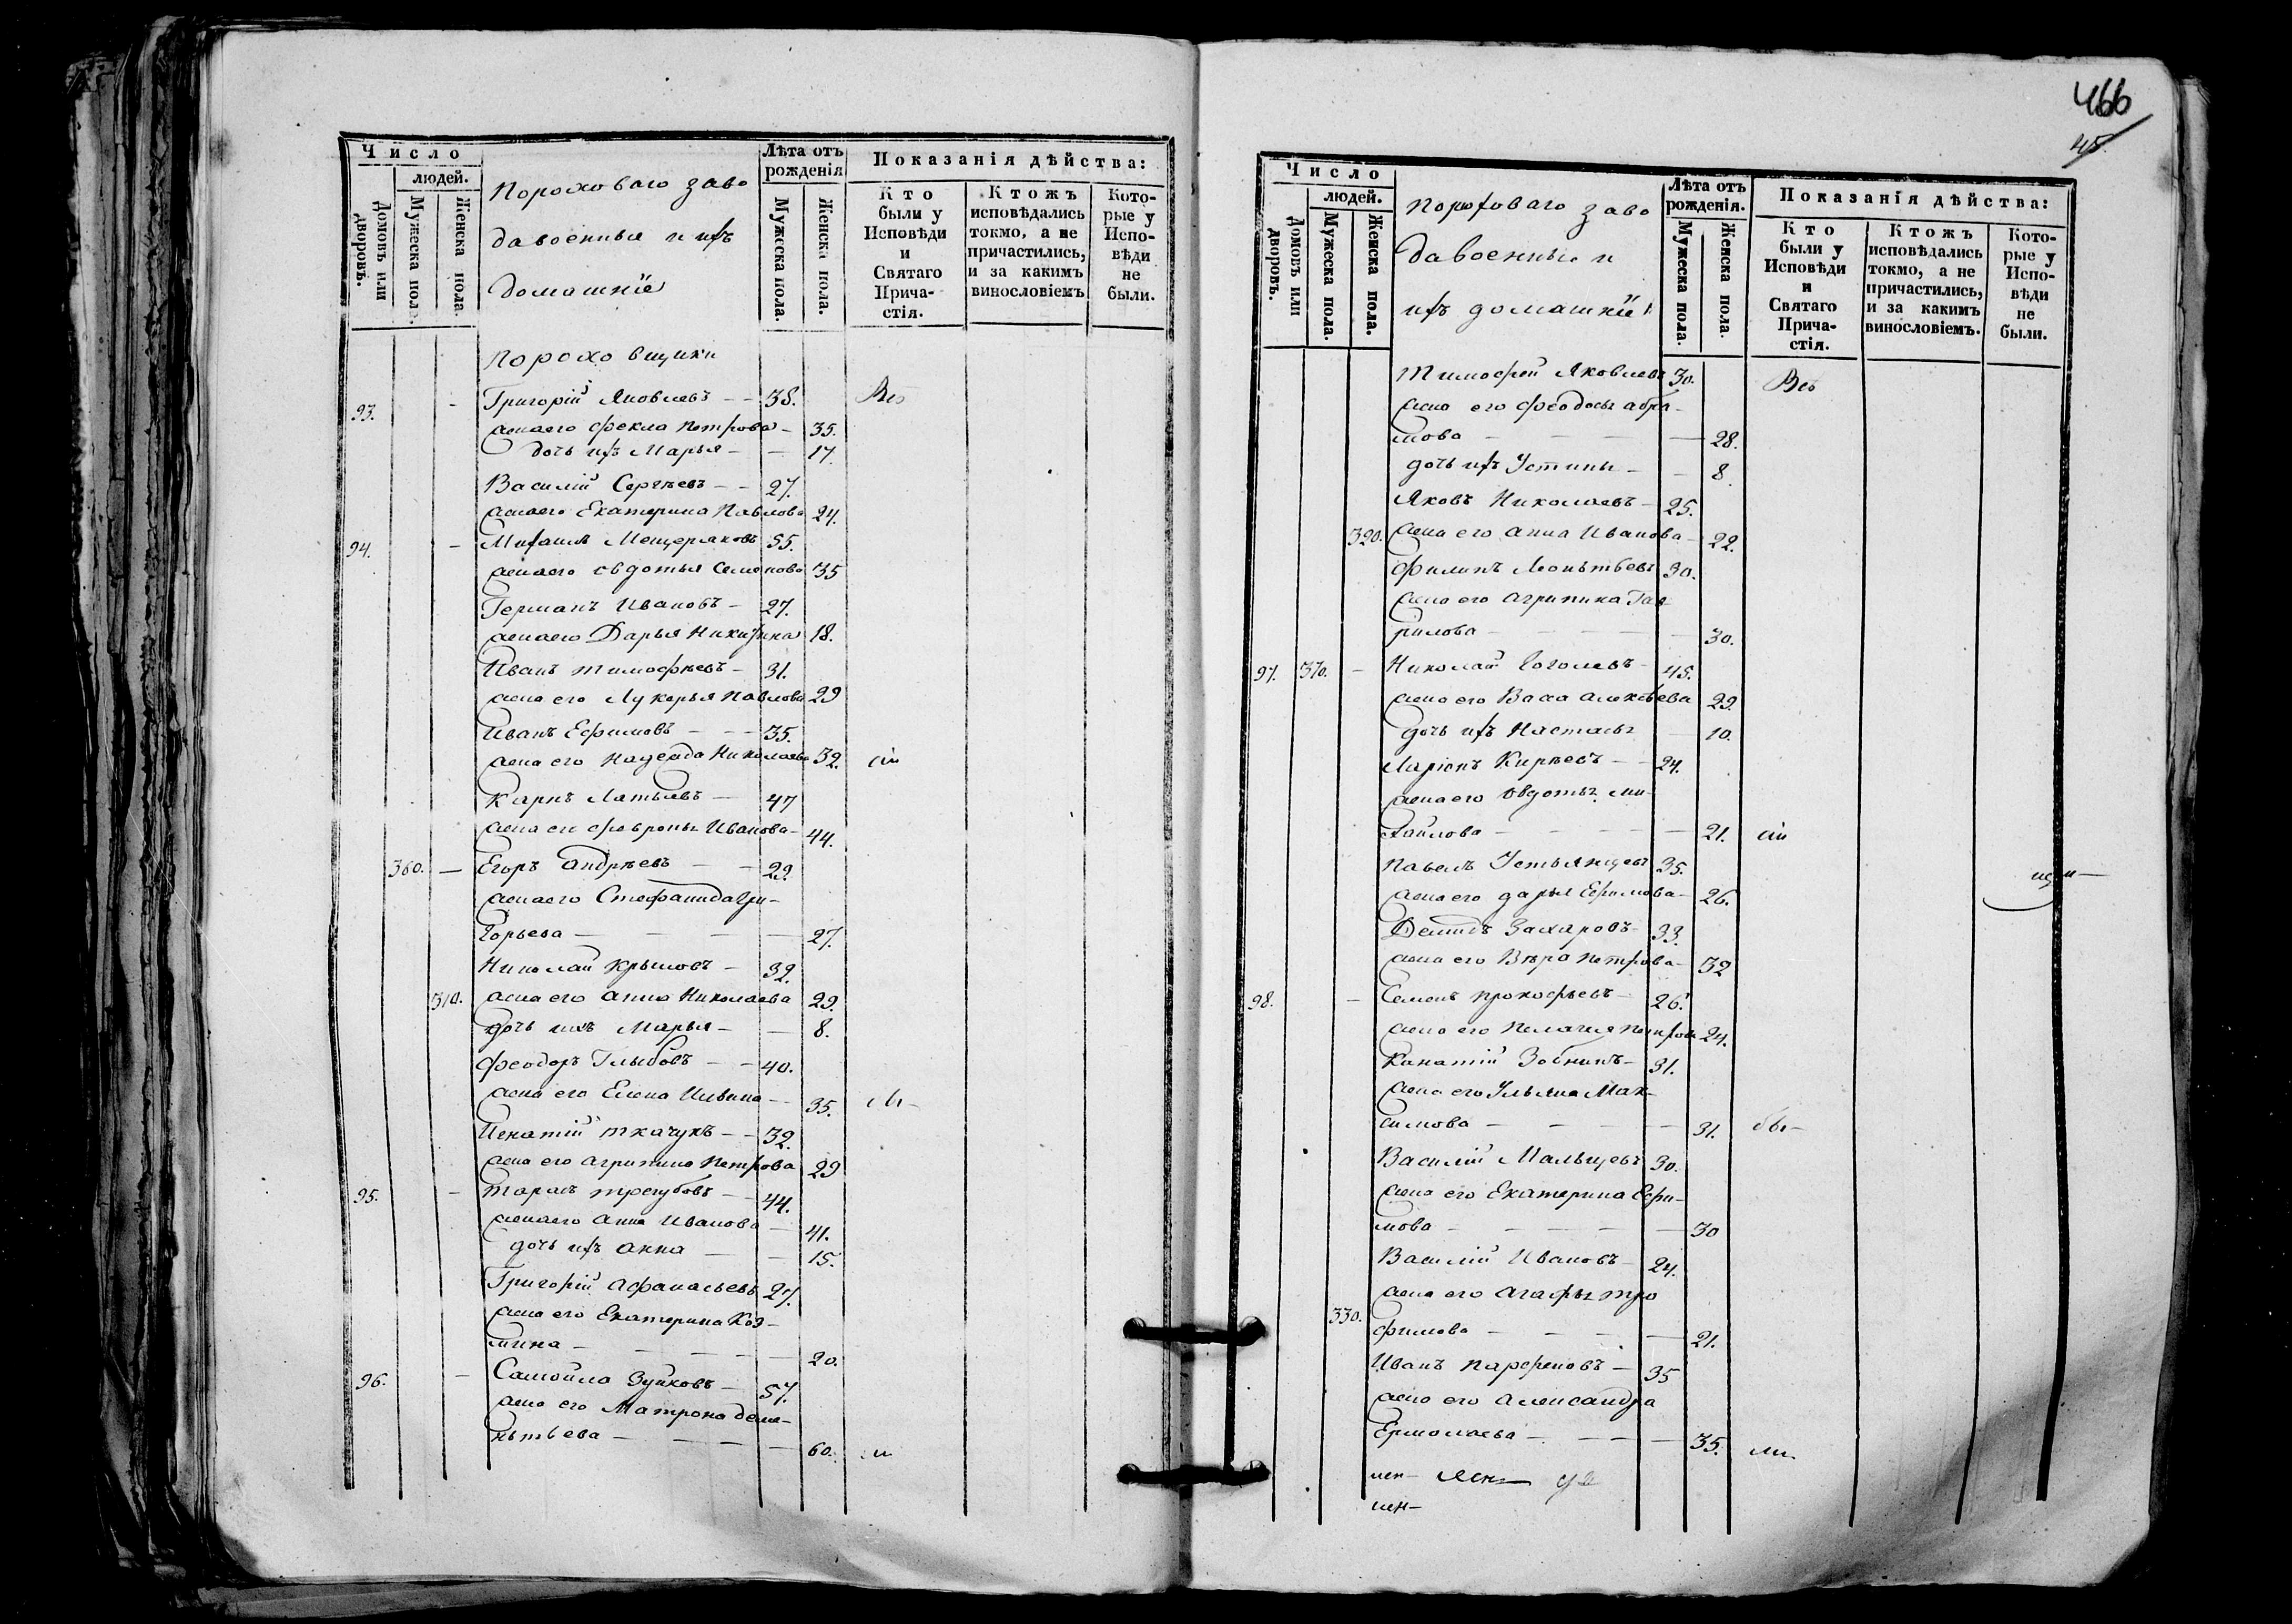 Число
людей.
Домовъ или дворовъ.
Мужеска пола.
Женска пола.
Пороховаго заво
да военныя и ихъ
домашнїе
Лѣта отъ рожденія
Мужеска пола.
Женска пола.
Показанія дѣйства:
Кто были у Исповѣди и Святаго Прича-стія.
Ктожъ исповѣдались токмо, а не причастились, и за какимъ винословіемъ
Кото-рые у Испо-вѣди не были.
Пороховщики
93. Григорій Яковлевъ - - 38. Всѣ
жена его Фекла Петрова - 35.
дочь ихъ Марья - - 17.
Василій Сергѣевъ - - 27.
жена его Екатерина Павлова 24.
94. - Михаила Мещеряковъ 55.
жена его Овдотья Семенова 35
Германъ Ивановъ - 27.
жена его Дарья Никитина 18.
Иванъ Тимофѣевъ - 31.
жена его Лукерья Павлова 29
Иванъ Ефимовъ - - 35.
жена его Надежда Николаева 32.
Карпъ - 47
жена его Февронья Иванова - 44.
360. - Егоръ Андрѣевъ - - 29.
жена его Стефанида Гри-
горьева - - - - 27.
Николай Крыловъ - 32.
310. жена его Анна Николаева 29.
дочь ихъ Марья - - 8.
Феодоръ Глыбовъ - - 40.
жена его Елена - 35.
Игнатій Ткачукъ - - 32.
жена его Агрипина Петрова 29
95. - Тарасъ Трегубовъ - - 44.
жена его Анна Иванова - 41.
дочь ихъ Анна - - 15.
Григорій Афанасьевъ 27.
жена его Екатерина Коз-
мина - - - - 20.
96. - Самойла Зуйковъ - 57.
жена его Матрона Деме-
нтьева - - - - 60.
466
45.
Число
людей.
Домовъ или дворовъ.
Мужеска пола.
Женска пола.
Пороховаго заво
да военныя и
ихъ домашнїе
Лѣта отъ рожденія.
Мужеска пола.
Женска пола.
Показанія дѣйства:
Кто были у Исповѣди и Святаго Прича-стія.
Ктожъ исповѣдались токмо, а не причастились, и за какимъ винословіемъ.
Кото-рые у Испо-вѣди не были.
Тимофей Яковлевъ 30. Всѣ
жена его Феодосья Абра-
мова - - - - 28.
дочь ихъ Устинья - - 8.
Яковъ Николаевъ - 25.
320. жена его Анна Иванова - 22.
Филипъ Леонтьевъ 30.
жена его Агрипина Гав
рилова - - - - 30.
97. 370. - Николай Гоголевъ - 45.
жена его Васа Алексѣева 29.
дочь ихъ Настасья - 10.
Ларіонъ Кирѣевъ - - 24.
жена его Овдотья Ми-
хайлова - - - - 21.
Павелъ Устьянцевъ 35.
жена его Дарья Ефимова - 26.
Демидъ Захаровъ - 33.
жена его Вѣра Петрова - 32
98. - Семенъ Прокофьевъ - 26.
жена его Пелагия Петрова 24.
Зобнинъ - 31.
жена его Ульяна Мак-
симова - - - - 31. бы-
Василій Мальцевъ 30.
жена его Екатерина Ефи-
мова - - - - 30
Василій Ивановъ - 24.
жена его Агафья Тро
330. фимова - - - - 21.
Иванъ Парфеновъ - 35
жена его Александра
Ермолаева - - - - 35. ли